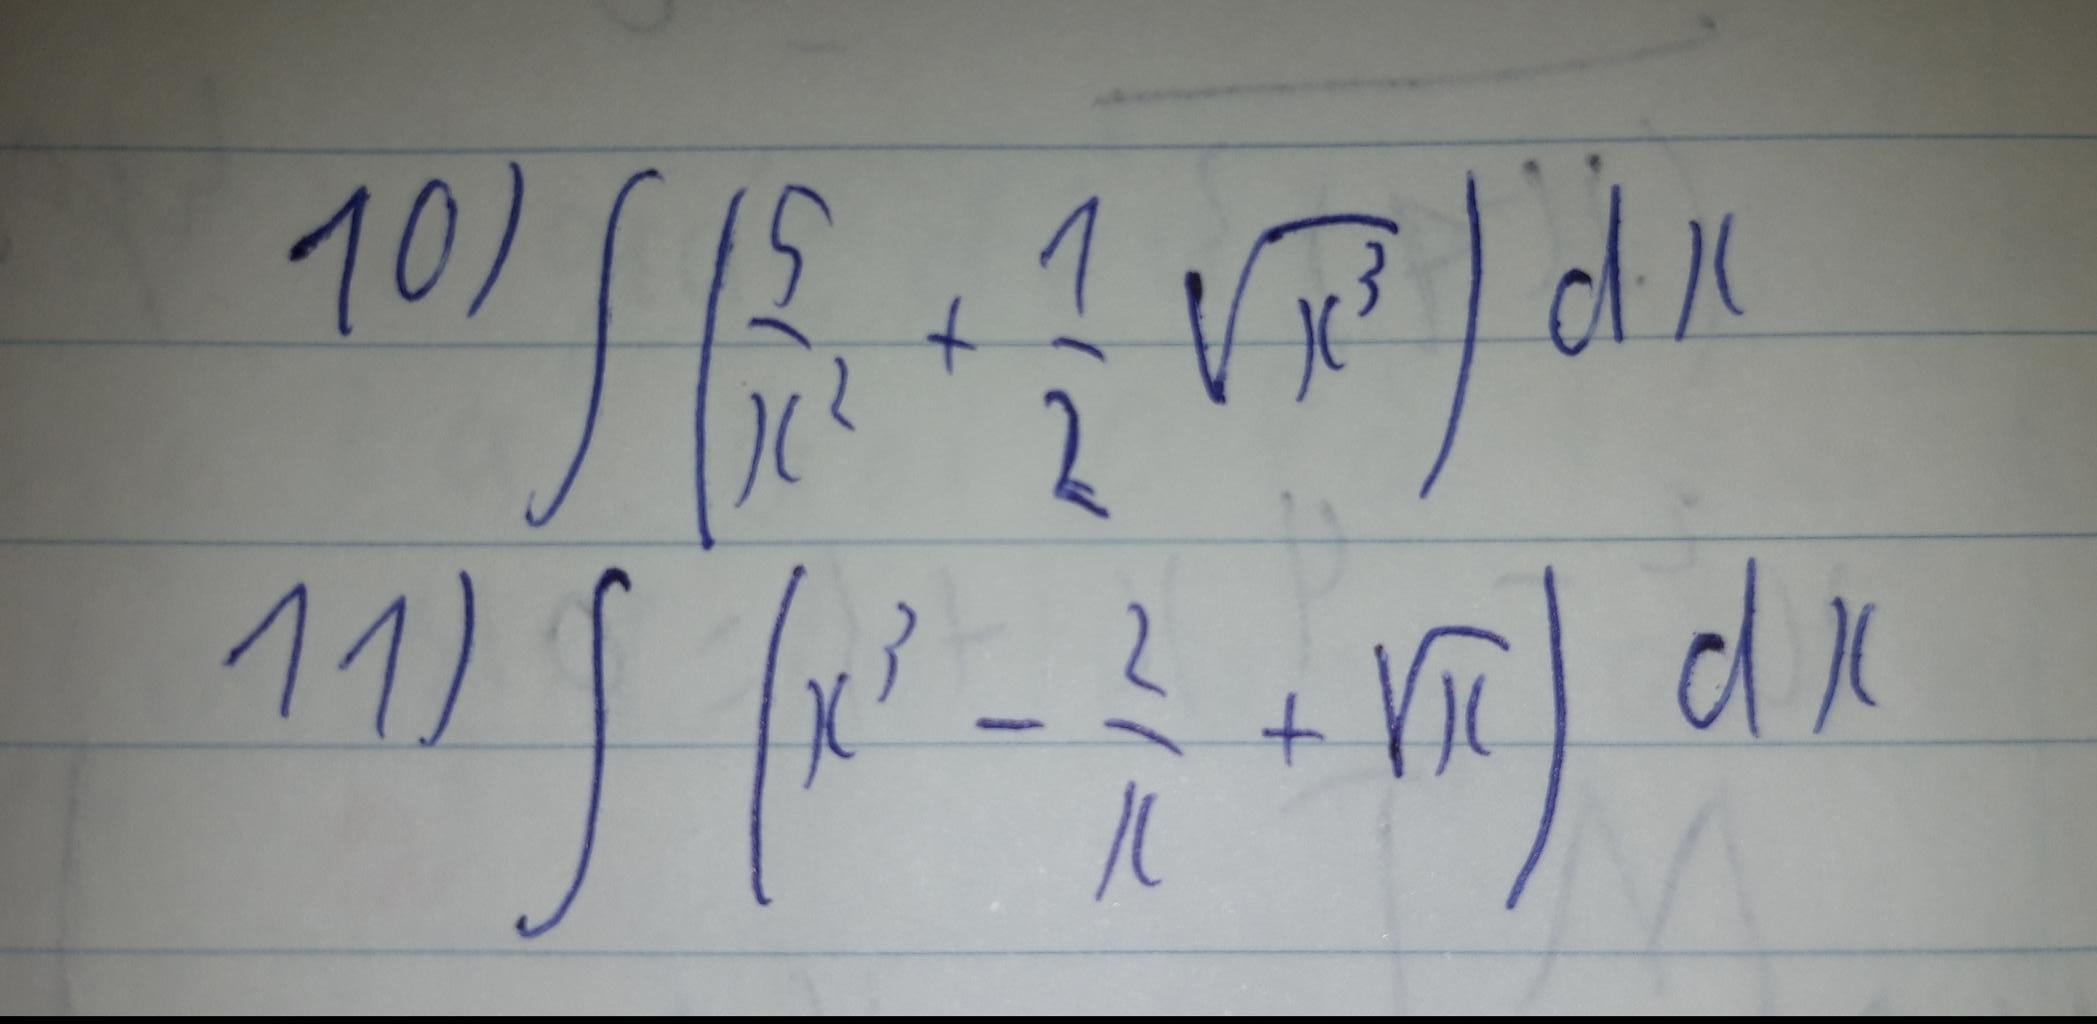 10) ∫ (5/x² + 1/2 √x³) dx
11) ∫ (x³ - 2/x + √x) dx